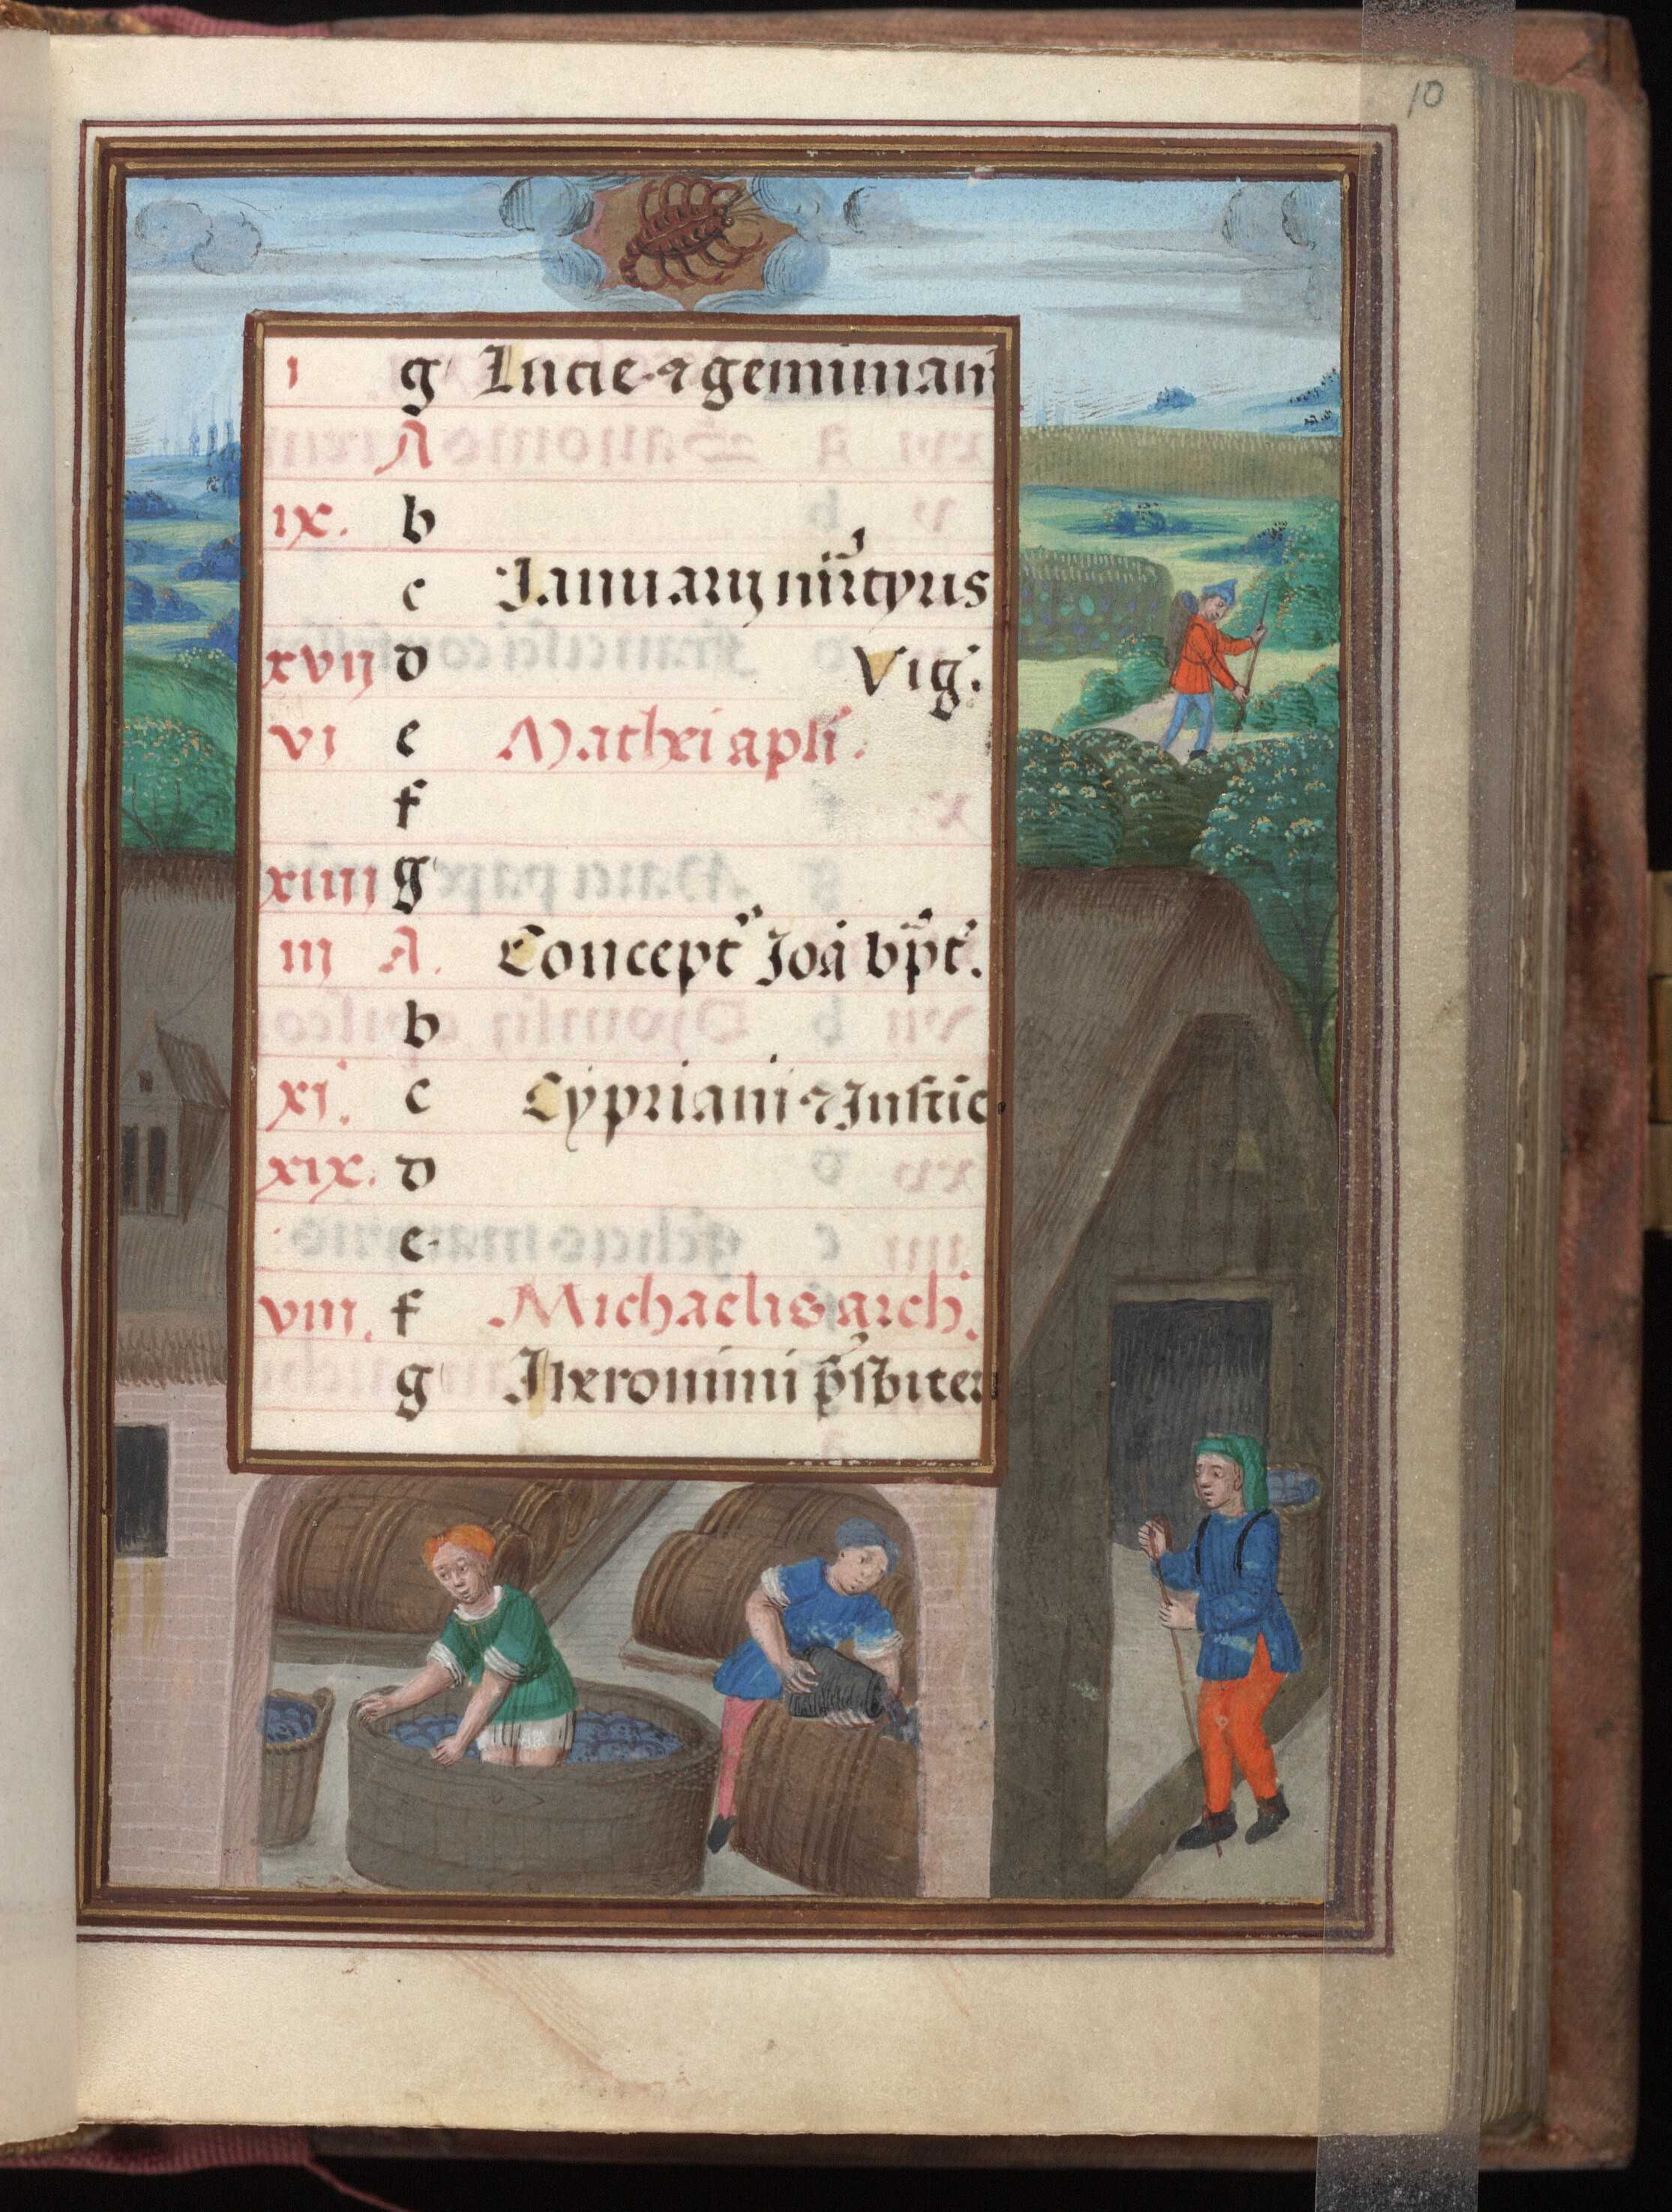 10
i g Lucie ⁊ geminiani
A
ix. b
c Januarij mr̄tyris
xvij d Vig.
vi e Mathei apl̄i.
f
xiiii g
iij A. Concept᷒ Joā bp̄t.
b
xi. c Cypriani ⁊ Justīe
xix. d
e.
viii. f Michaelis arch.
g Iheronimi p̄sbiter